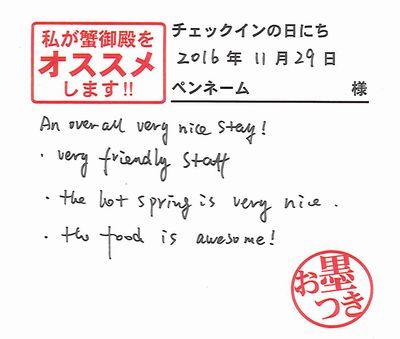 私が蟹御殿を
オススメ
します!!
チェックインの日にち
2016年11月29日
ペンネーム 様
An overall very nice stay!
· very friendly staff
· the hot spring is very nice.
· the food is awesome!
お墨つき